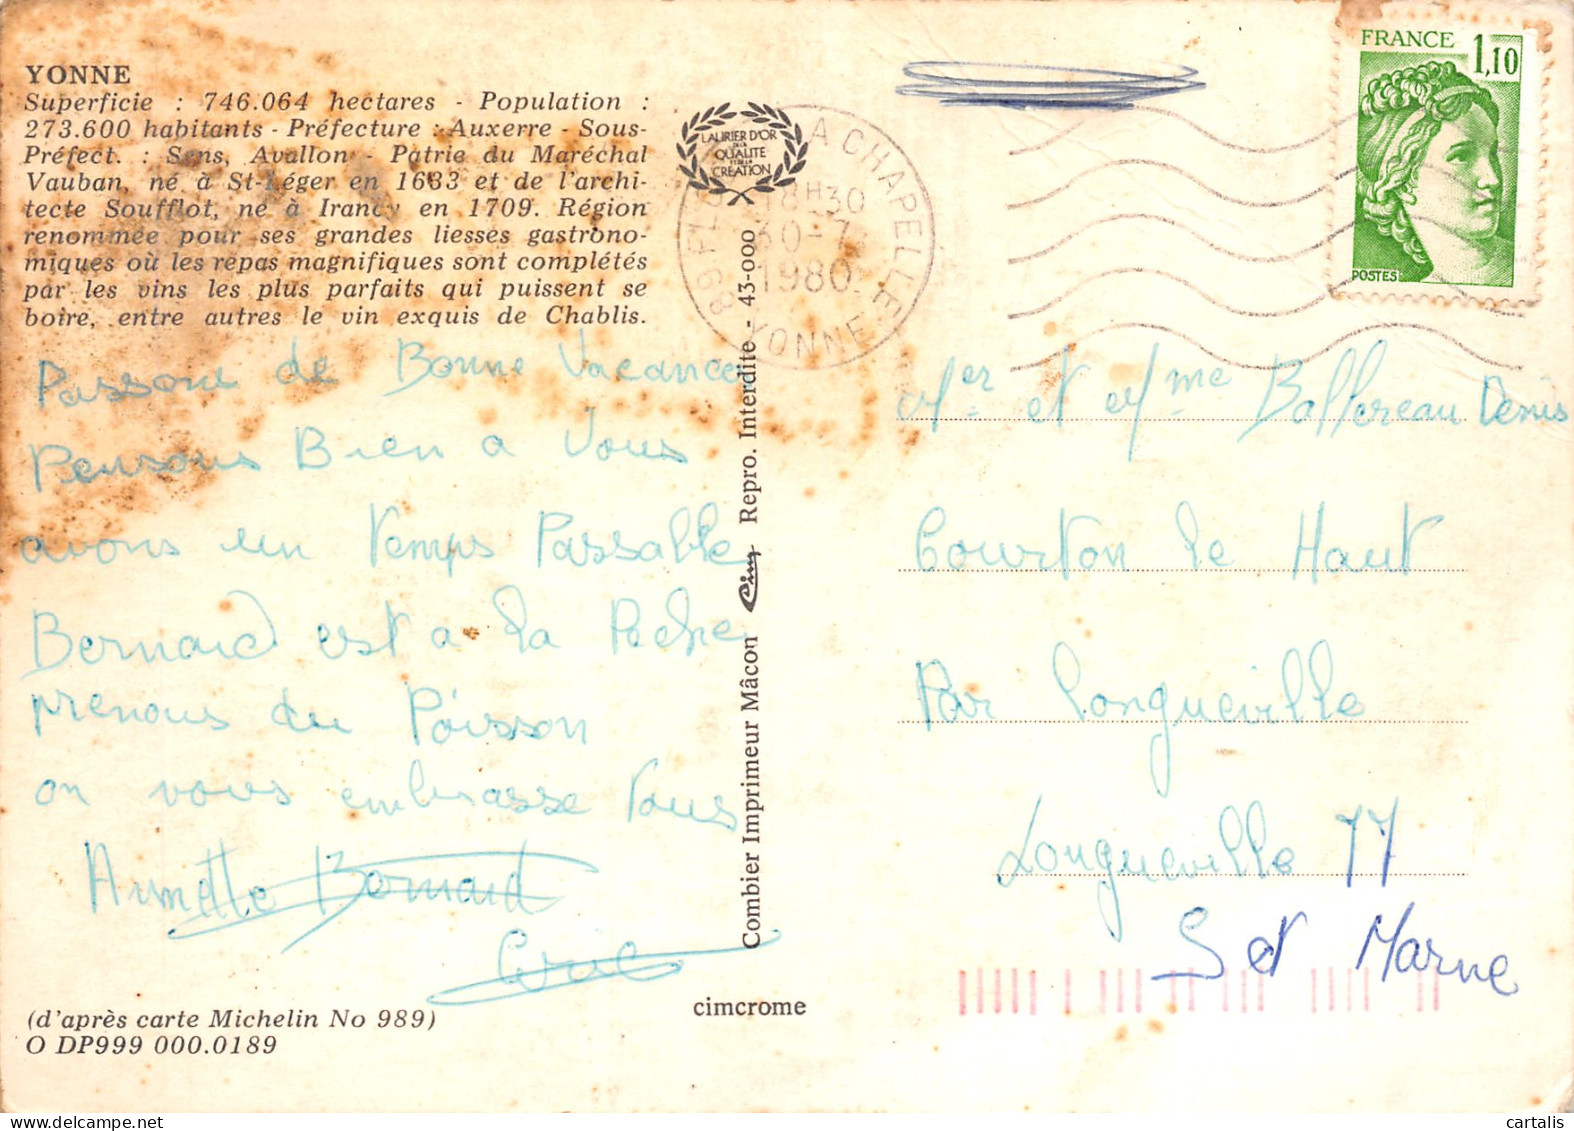 YONNE
Superficie : 746.064 hectares - Population :
273.600 habitants - Préfecture : Auxerre - Sous-
Préfect. : Sens, Avallon - Patrie du Maréchal
Vauban, né à St-Léger en 1633 et de l'archi-
tecte Soufflot, né à Irancy en 1709. Région
renommée pour ses grandes liesses gastrono-
miques où les repas magnifiques sont complétés
par les vins les plus parfaits qui puissent se
boire, entre autres le vin exquis de Chablis.
Passons de Bonne Vacance
Pensons Bien a Vous
avons un Temps Passable
Bernard est a la Peche
prenons du Poisson
on vous embrasse Tous
Annette Bernard
Eric
(d'après carte Michelin No 989)
O DP999 000.0189
LAURIER D'OR
DE LA
QUALITE
ET DE LA
CREATION
Combier Imprimeur Mâcon Cim Repro. Interdite - 43-000
cimcrome
89 LA CHAPELLE
18H30
30-7
1980
YONNE
FRANCE 1,10
POSTES
Mr et Mme Ballereau Denis
Courton le Haut
Par Longueville
Longueville 77
S et Marne
cartalis